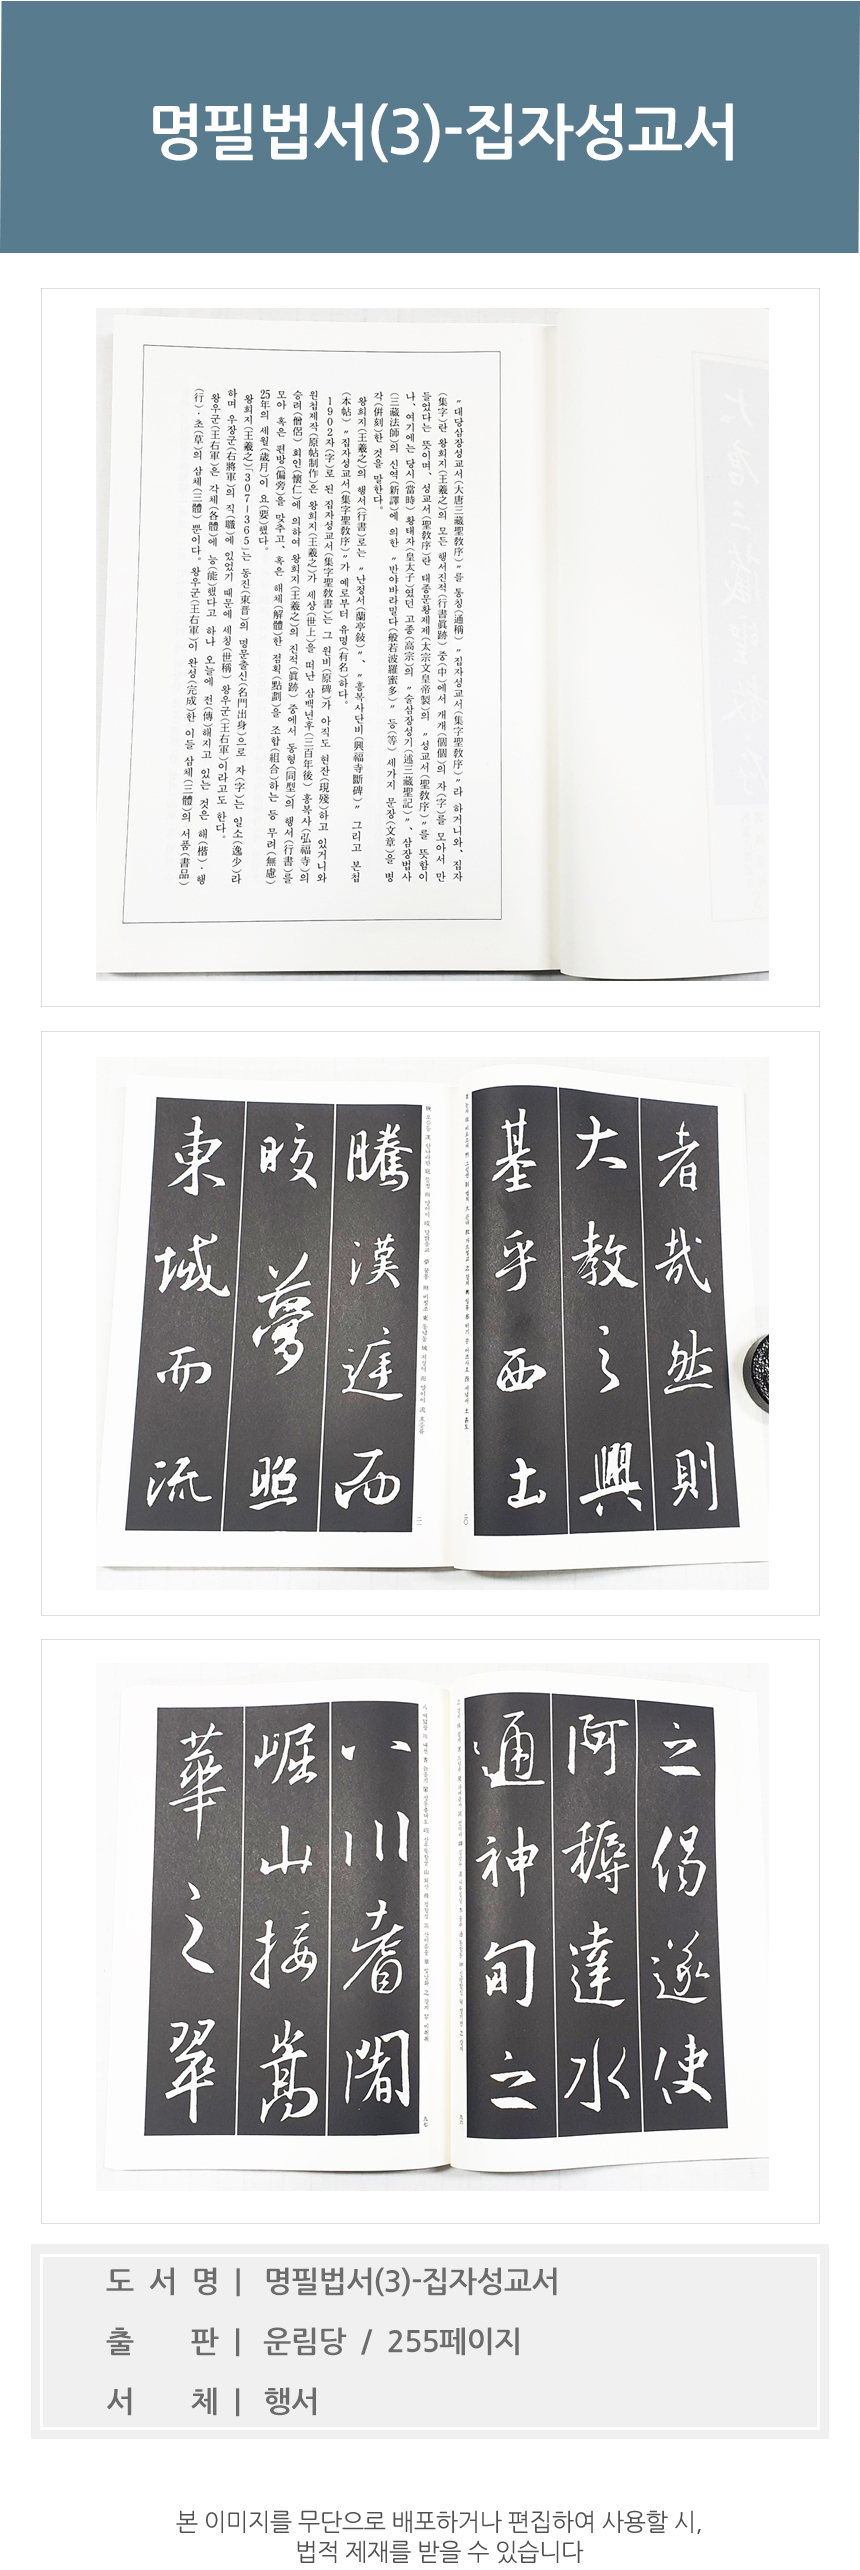 명필법서(3)-집자성교서
〃대당삼장성교서(大唐三藏聖敎序)〃를 통칭(通稱) 〃집자성교서(集字聖敎序)〃라 하거니와、집자
(集字)란 왕희지(王羲之)의 모든 행서진적(行書眞跡) 중(中)에서 개개(個個)의 자(字)를 모아서 만
들었다는 뜻이며、성교서(聖敎序)란 태종문황제제(太宗文皇帝製)의 〃성교서(聖敎序)〃를 뜻함이
나、여기에는 당시(當時) 황태자(皇太子)였던 고종(高宗)의 〃술삼장성기(述三藏聖記)〃、삼장법사
(三藏法師)의 신역(新譯)에 의한 〃반야바라밀다(般若波羅蜜多)〃 등(等) 세가지 문장(文章)을 병
각(倂刻)한 것을 말한다。
왕희지(王羲之)의 행서(行書)로는 〃난정서(蘭亭敍)〃、〃흥복사단비(興福寺斷碑)〃 그리고 본첩
(本帖) 〃집자성교서(集字聖敎序)〃가 예로부터 유명(有名)하다。
1902자(字)로 된 집자성교서(集字聖敎書)는 그 원비(原碑)가 아직도 현잔(現殘)하고 있거니와
원첩제작(原帖制作)은 왕희지(王羲之)가 세상(世上)을 떠난 삼백년후(三百年後) 홍복사(弘福寺)의
승려(僧侶) 회인(懷仁)에 의하여 왕희지(王羲之)의 진적(眞跡) 중에서 동형(同型)의 행서(行書)를
모아 혹은 편방(偏旁)을 맞추고、혹은 해체(解體)한 점획(點劃)을 조합(組合)하는 등 무려(無慮)
25年의 세월(歲月)이 요(要)했다。
왕희지(王羲之)「307－365」는 동진(東晋)의 명문출신(名門出身)으로 자(字)는 일소(逸少)라
하며 우장군(右將軍)의 직(職)에 있었기 때문에 세칭(世稱) 왕우군(王右軍)이라고도 한다。
왕우군(王右軍)은 각체(各體)에 능(能)했다고 하나 오늘에 전(傳)해지고 있는 것은 해(楷)·행
(行)·초(草)의 삼체(三體) 뿐이다。왕우군(王右軍)이 완성(完成)한 이들 삼체(三體)의 서품(書品)
者哉然則
大教之興
基乎西土
二〇
騰漢庭而
皎夢照
東域而流
二一
之偈遂使
阿耨達水
通神甸之
九六
八川耆闍
崛山接嵩
華之翠
九七
도 서 명 | 명필법서(3)-집자성교서
출 판 | 운림당 / 255페이지
서 체 | 행서
본 이미지를 무단으로 배포하거나 편집하여 사용할 시,
법적 제재를 받을 수 있습니다